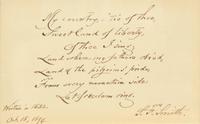 My country, 'tis of thee,
Sweet land of liberty,
Of thee I sing;
Land where my fathers died,
Land of the pilgrims' pride,
From every mountain side
Let freedom ring.
Written in 1832.
S. F. Smith.
Oct. 18, 1890.